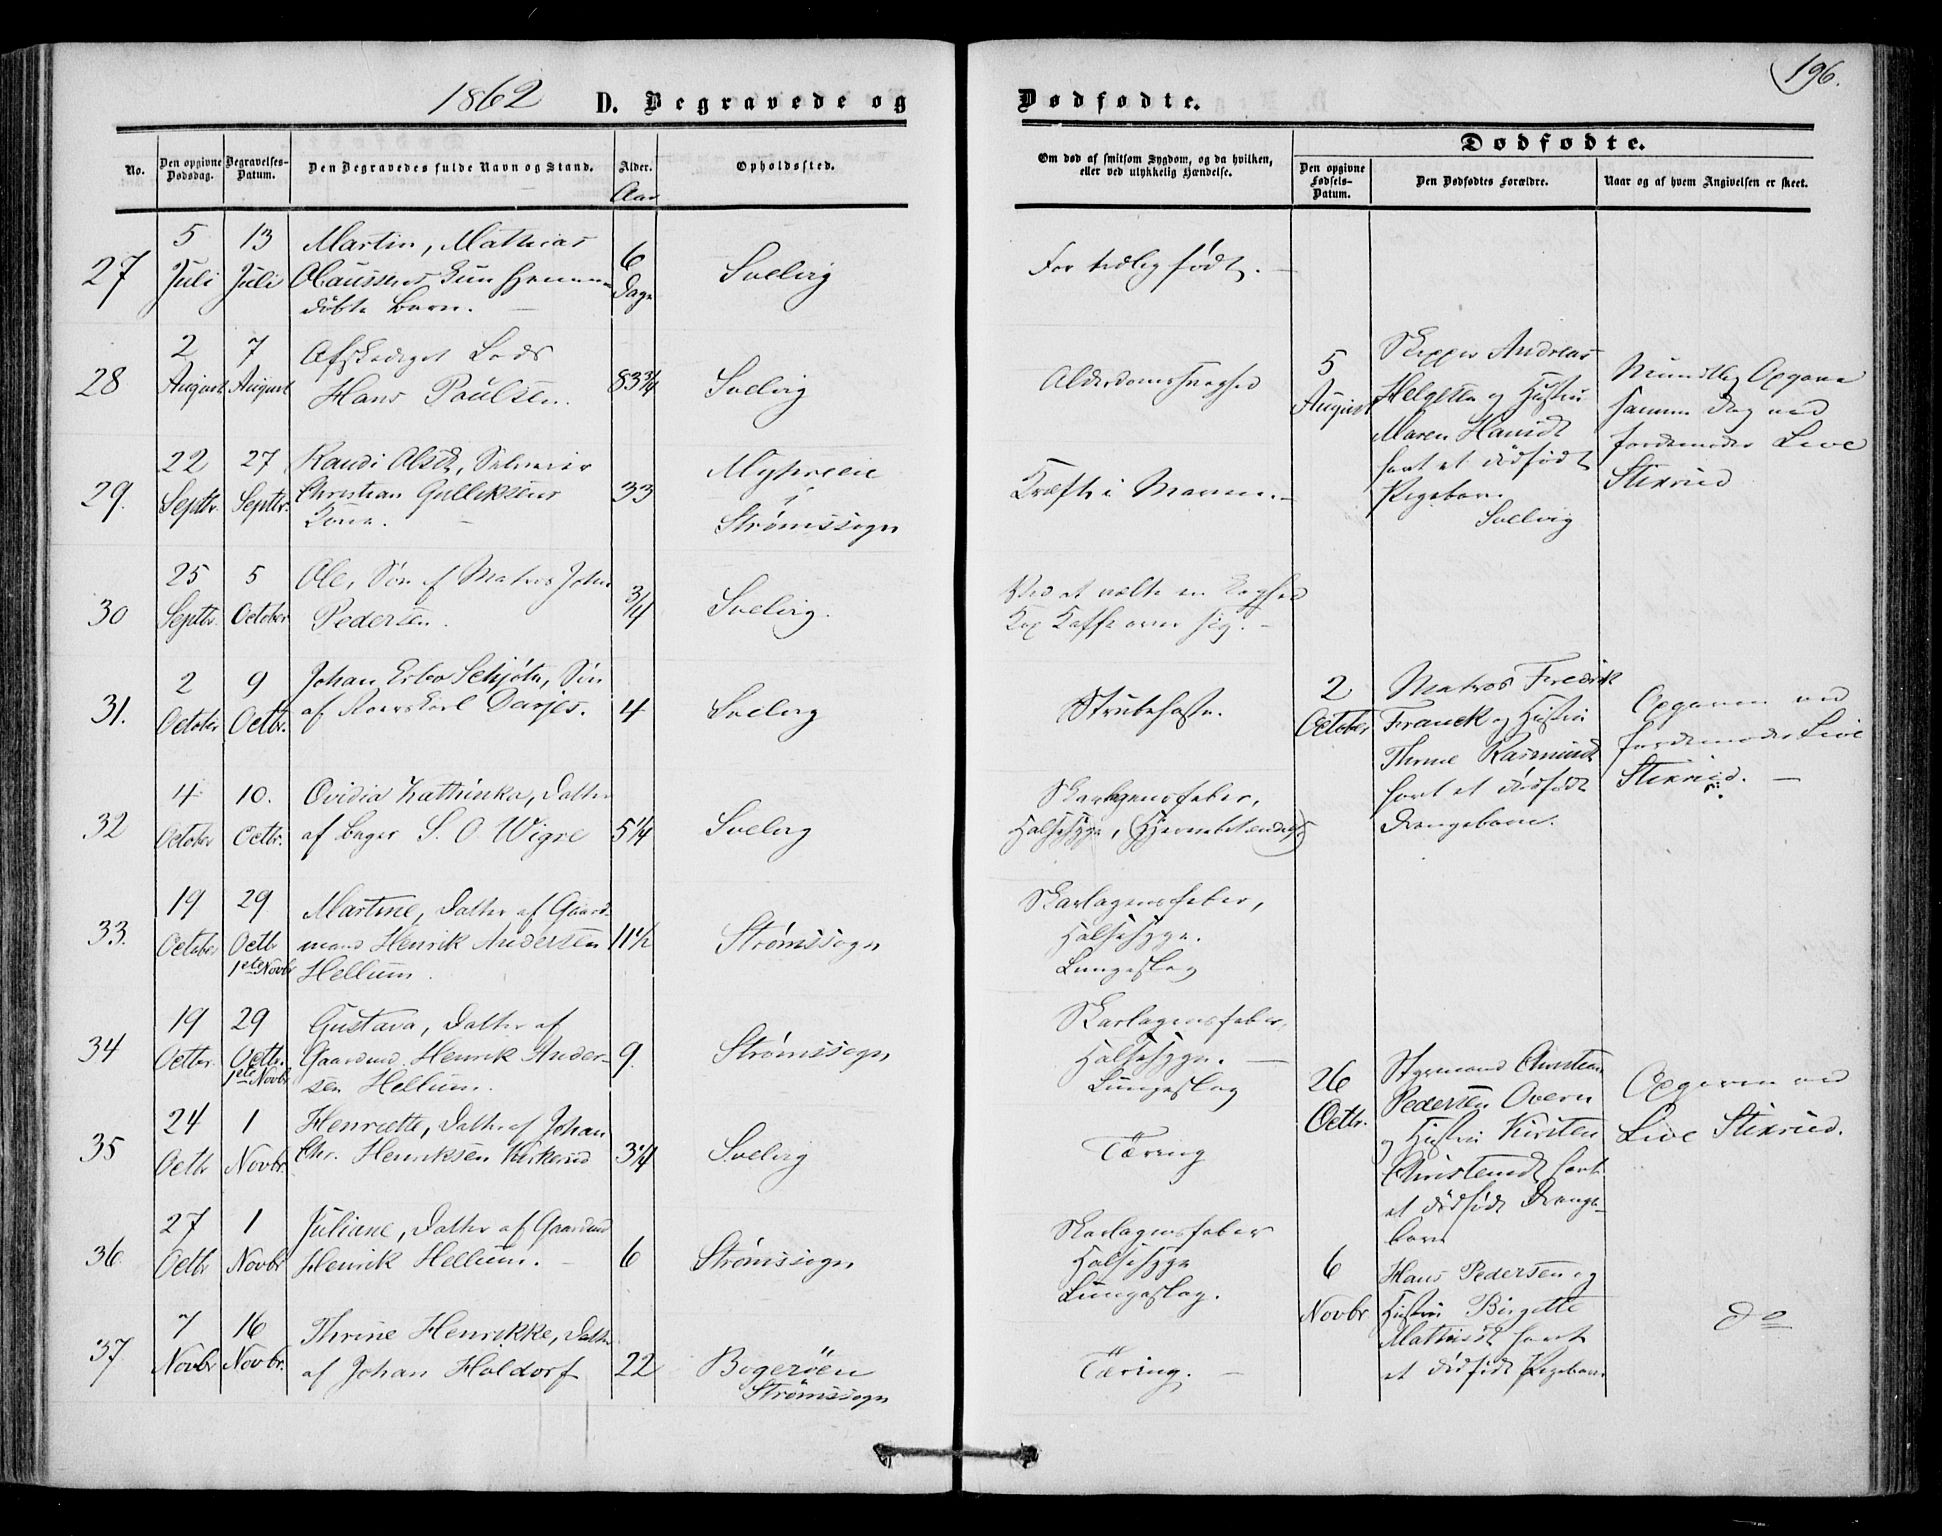 1862
D. Begravede og
Dødfødte.
196.
No.
Den opgivne
Dødsdag.
Begravelses-
Datum.
Den Begravedes fulde Navn og Stand.
Alder.
Aar
Opholdssted.
Om død af smitsom Sygdom, og da hvilken,
eller ved ulykkelig Hændelse.
Dødfødte.
Den opgivne
Fødsels-
Datum.
Den Dødfødtes Forældre.
Naar og af hvem Angivelsen er skeet.
27
5
Juli
13
Juli
Martin, Mathias
Claussens kun hjemme
døbte Barn.
6
Dage
Svelvig
For tidlig født.
28
2
August
7
August
Afskediget Lods
Hans Paulsen.
83 3/4
Svelvig
Alderdomssvaghed
5
August
Skipper Andreas
Helgesen og Hustru
Maren Hansdt
havt et dødfødt
Pigebarn.
Svelvig
Mundtlig Opgave
samme Dag ved
Jordemoder Live
Stixrud
29.
22
Septbr.
27
Septbr.
Randi Olsdt,
Christian Gulliksens
Kone.
33
i
Strømssogn
Kræft i Maven.
30
25
Septbr.
5
October
Ole, Søn af Matros John
Pedersen.
3/4
Svelvig.
Ved at vælte en
Kop Kaffe over sig.
31.
2
October
9
Octbr.
Johan Erbo Schjøth, Søn
af Darjes.
4
Svelvig
Strubehoste.
2
October
Matros Fredrik
Franck og Hustru
Thrine Rasmusdt
havt et dødfødt
Drengebarn.
Opgaven ved
Jordemoder Live
Stixrud.
32
4
October
10.
Octbr.
Ovidia Kathinka, Datter
af Bager S. O. Wigre
5 1/4
Svelvig
Skarlagensfeber,
Halssyge, (Hjernebetændelse)
33.
19
October
29
Octb
1ste Novbr
Martine, Datter af Gaard-
mand Henrik Andersen
Hellum.
11 1/2
Strømssogn
Skarlagensfeber,
Halssyge.
Lungeslag
34
19
Octbr.
29
Octbr.
1ste Novbr
Gustava, Datter af
Gaardmd Henrik Ander-
sen Hellum.
9.
Strømssogn
Skarlagensfeber,
Halssyge.
Lungeslag
26
Octbr.
Styrmand Christian
Pedersen Overn
og Hustru Kirsten
Christensdt havt
et dødfødt Drenge-
barn
Opgaven ved
Live Stixrud.
35
24
Octb
1
Novbr.
Henriette, Datter af Johan
Chr. Henriksen Kirkerud
3 1/4
Svelvig
Tæring
36.
27
Octbr
1
Novbr
Juliane, Datter af Gaardmd
Henrik Hellum.
6
Strømssogn
Skarlagensfeber
Halssyge
Lungeslag.
6
Novbr
Hans Pedersen og
Hustru Birgitte
Mathisdt havt
et dødfødt Pigebarn
do
37
7
Novbr
16
Novbr.
Thrine Henrikke, Datter
af Johan Holdorf
22
Bogerøen
Strømssogn
Tæring.